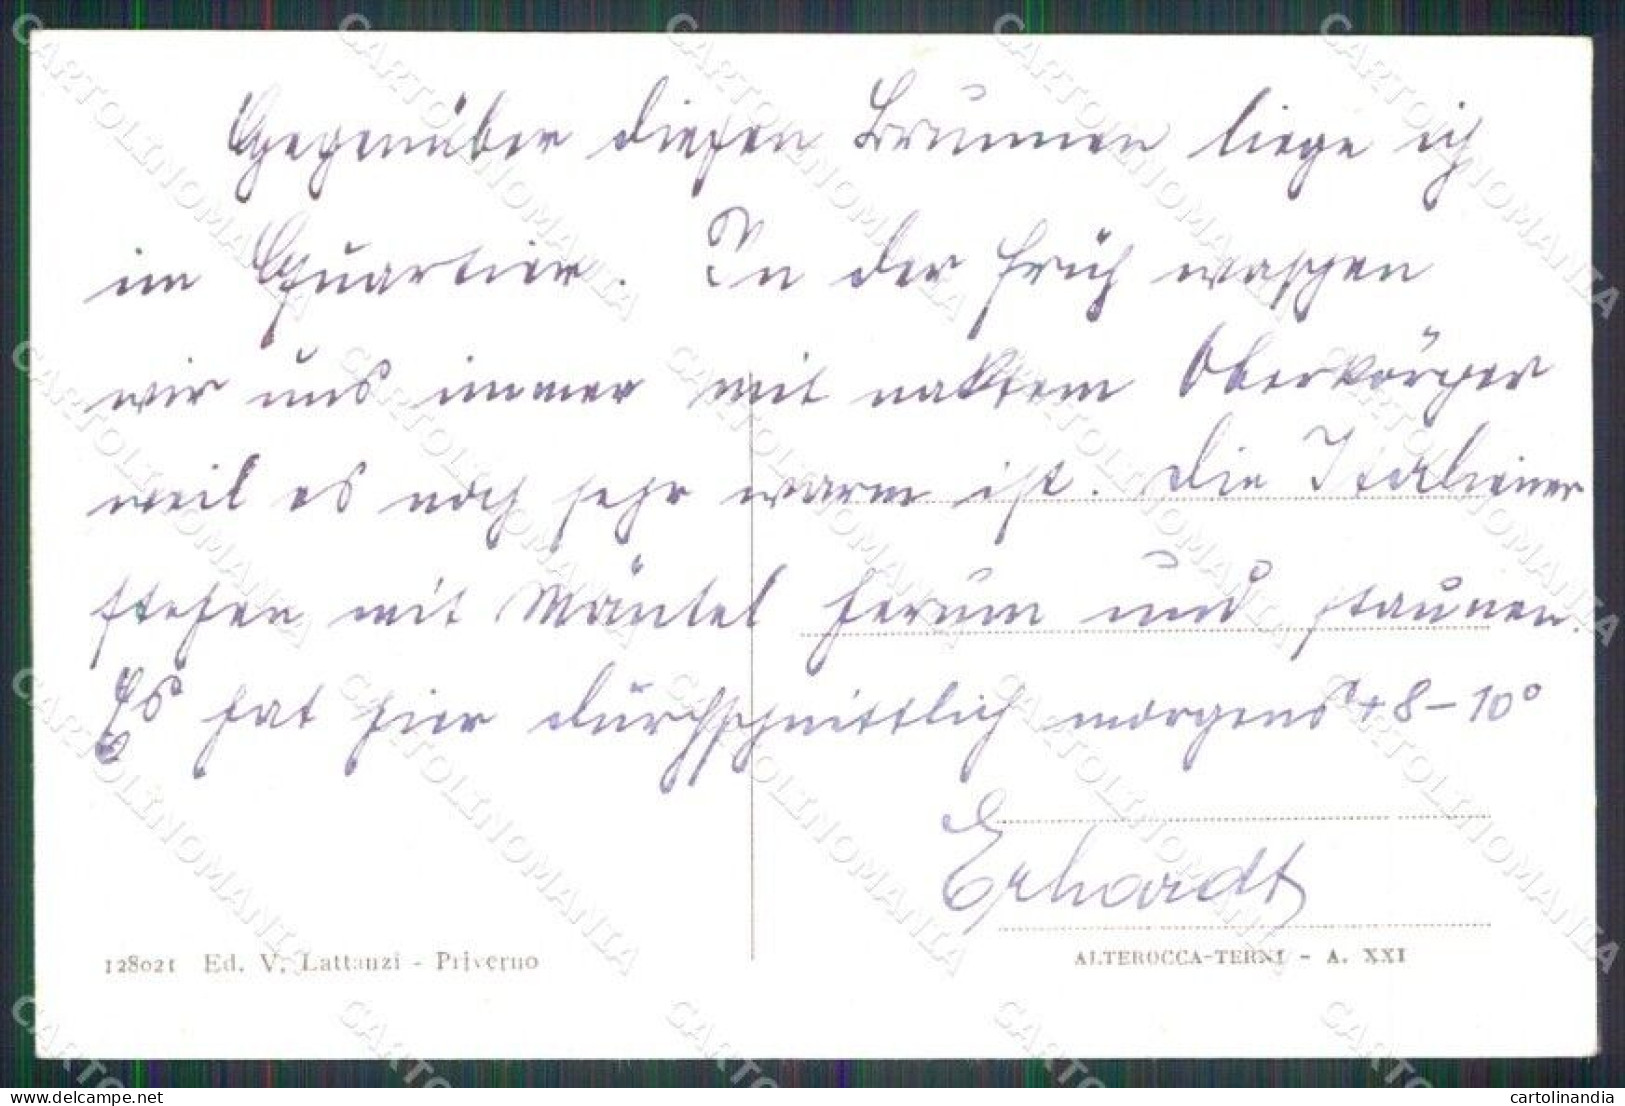 Gegenüber diesen Brunnen liege ich
im Quartier. In der Früh waschen
wir uns immer mit naktem Oberkörper
weil es noch sehr warm ist. Die Italiener
stehen mit Mäntel herum und staunen.
Es hat hier durchschnittlich morgens + 8 – 10°
Erhardt
128021 Ed. V. Lattanzi - Priverno
ALTEROCCA-TERNI - A. XXI
CARTOLINOMANIA
www.delcampe.net
cartolinandia